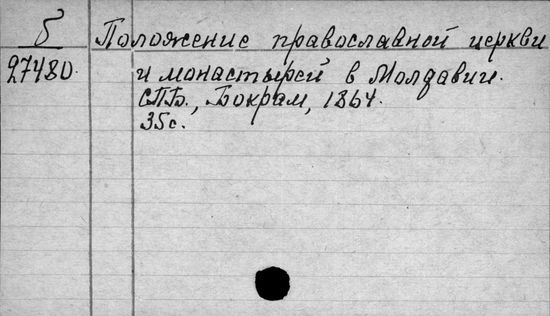 б Положение православной церкви
27480. и монастырей в Молдавии.
СПБ., Бокрам, 1864.
35 с.